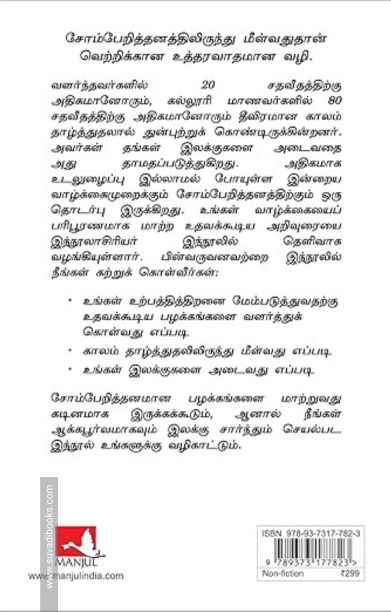 சோம்பேறித்தனத்திலிருந்து மீள்வதுதான்
வெற்றிக்கான உத்தரவாதமான வழி.
வளர்ந்தவர்களில் 20 சதவீதத்திற்கு
அதிகமானோரும், கல்லூரி மாணவர்களில் 80
சதவீதத்திற்கு அதிகமானோரும் தீவிரமான காலம்
தாழ்த்துதலால் துன்புற்றுக் கொண்டிருக்கின்றனர்.
அவர்கள் தங்கள் இலக்குகளை அடைவதை
அது தாமதப்படுத்துகிறது. அதிகமாக
உடலுழைப்பு இல்லாமல் போயுள்ள இன்றைய
வாழ்க்கைமுறைக்கும் சோம்பேறித்தனத்திற்கும் ஒரு
தொடர்பு இருக்கிறது. உங்கள் வாழ்க்கையைப்
பரிபூரணமாக மாற்ற உதவக்கூடிய அறிவுரையை
இந்நூலாசிரியர் இந்நூலில் தெளிவாக
வழங்கியுள்ளார். பின்வருவனவற்றை இந்நூலில்
நீங்கள் கற்றுக் கொள்வீர்கள்:
• உங்கள் உற்பத்தித்திறனை மேம்படுத்துவதற்கு
உதவக்கூடிய பழக்கங்களை வளர்த்துக்
கொள்வது எப்படி
• காலம் தாழ்த்துதலிலிருந்து மீள்வது எப்படி
• உங்கள் இலக்குகளை அடைவது எப்படி
சோம்பேறித்தனமான பழக்கங்களை மாற்றுவது
கடினமாக இருக்கக்கூடும், ஆனால் நீங்கள்
ஆக்கபூர்வமாகவும் இலக்கு சார்ந்தும் செயல்பட
இந்நூல் உங்களுக்கு வழிகாட்டும்.
www.suvadibooks.com
MANJUL
www.manjulindia.com
ISBN 978-93-7317-782-3
9 789373 177823 >
Non-fiction ₹299